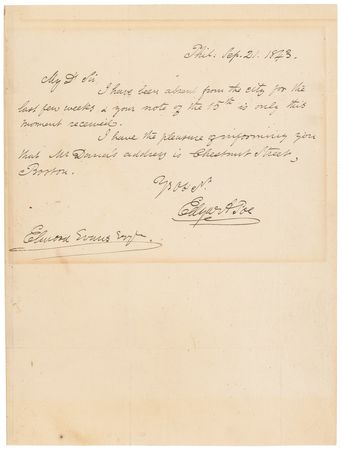 Phil. Sep. 21. 1843.
My Dr Sir
I have been absent from the city for the
last few weeks & your note of the 15th is only this
moment received.
I have the pleasure of informing you
that Mr Dana's address is Chestnut Street,
Boston.
Yr Ob St
Edgar A Poe
Elwood Evans Esqr.